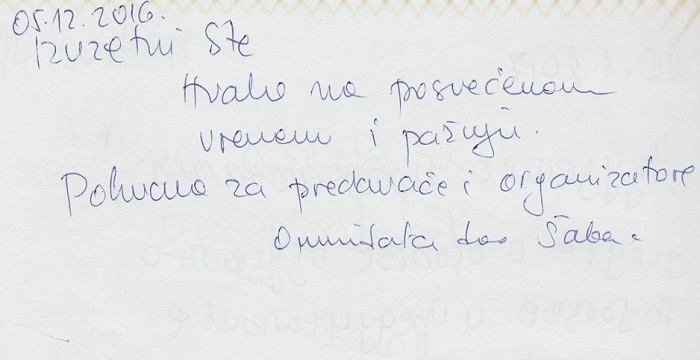 05.12.2016.
Izuzetni ste
Hvala na posvećenom
vremenu i pažnji.
Pohvala za predavače i organizatore
Šabac.